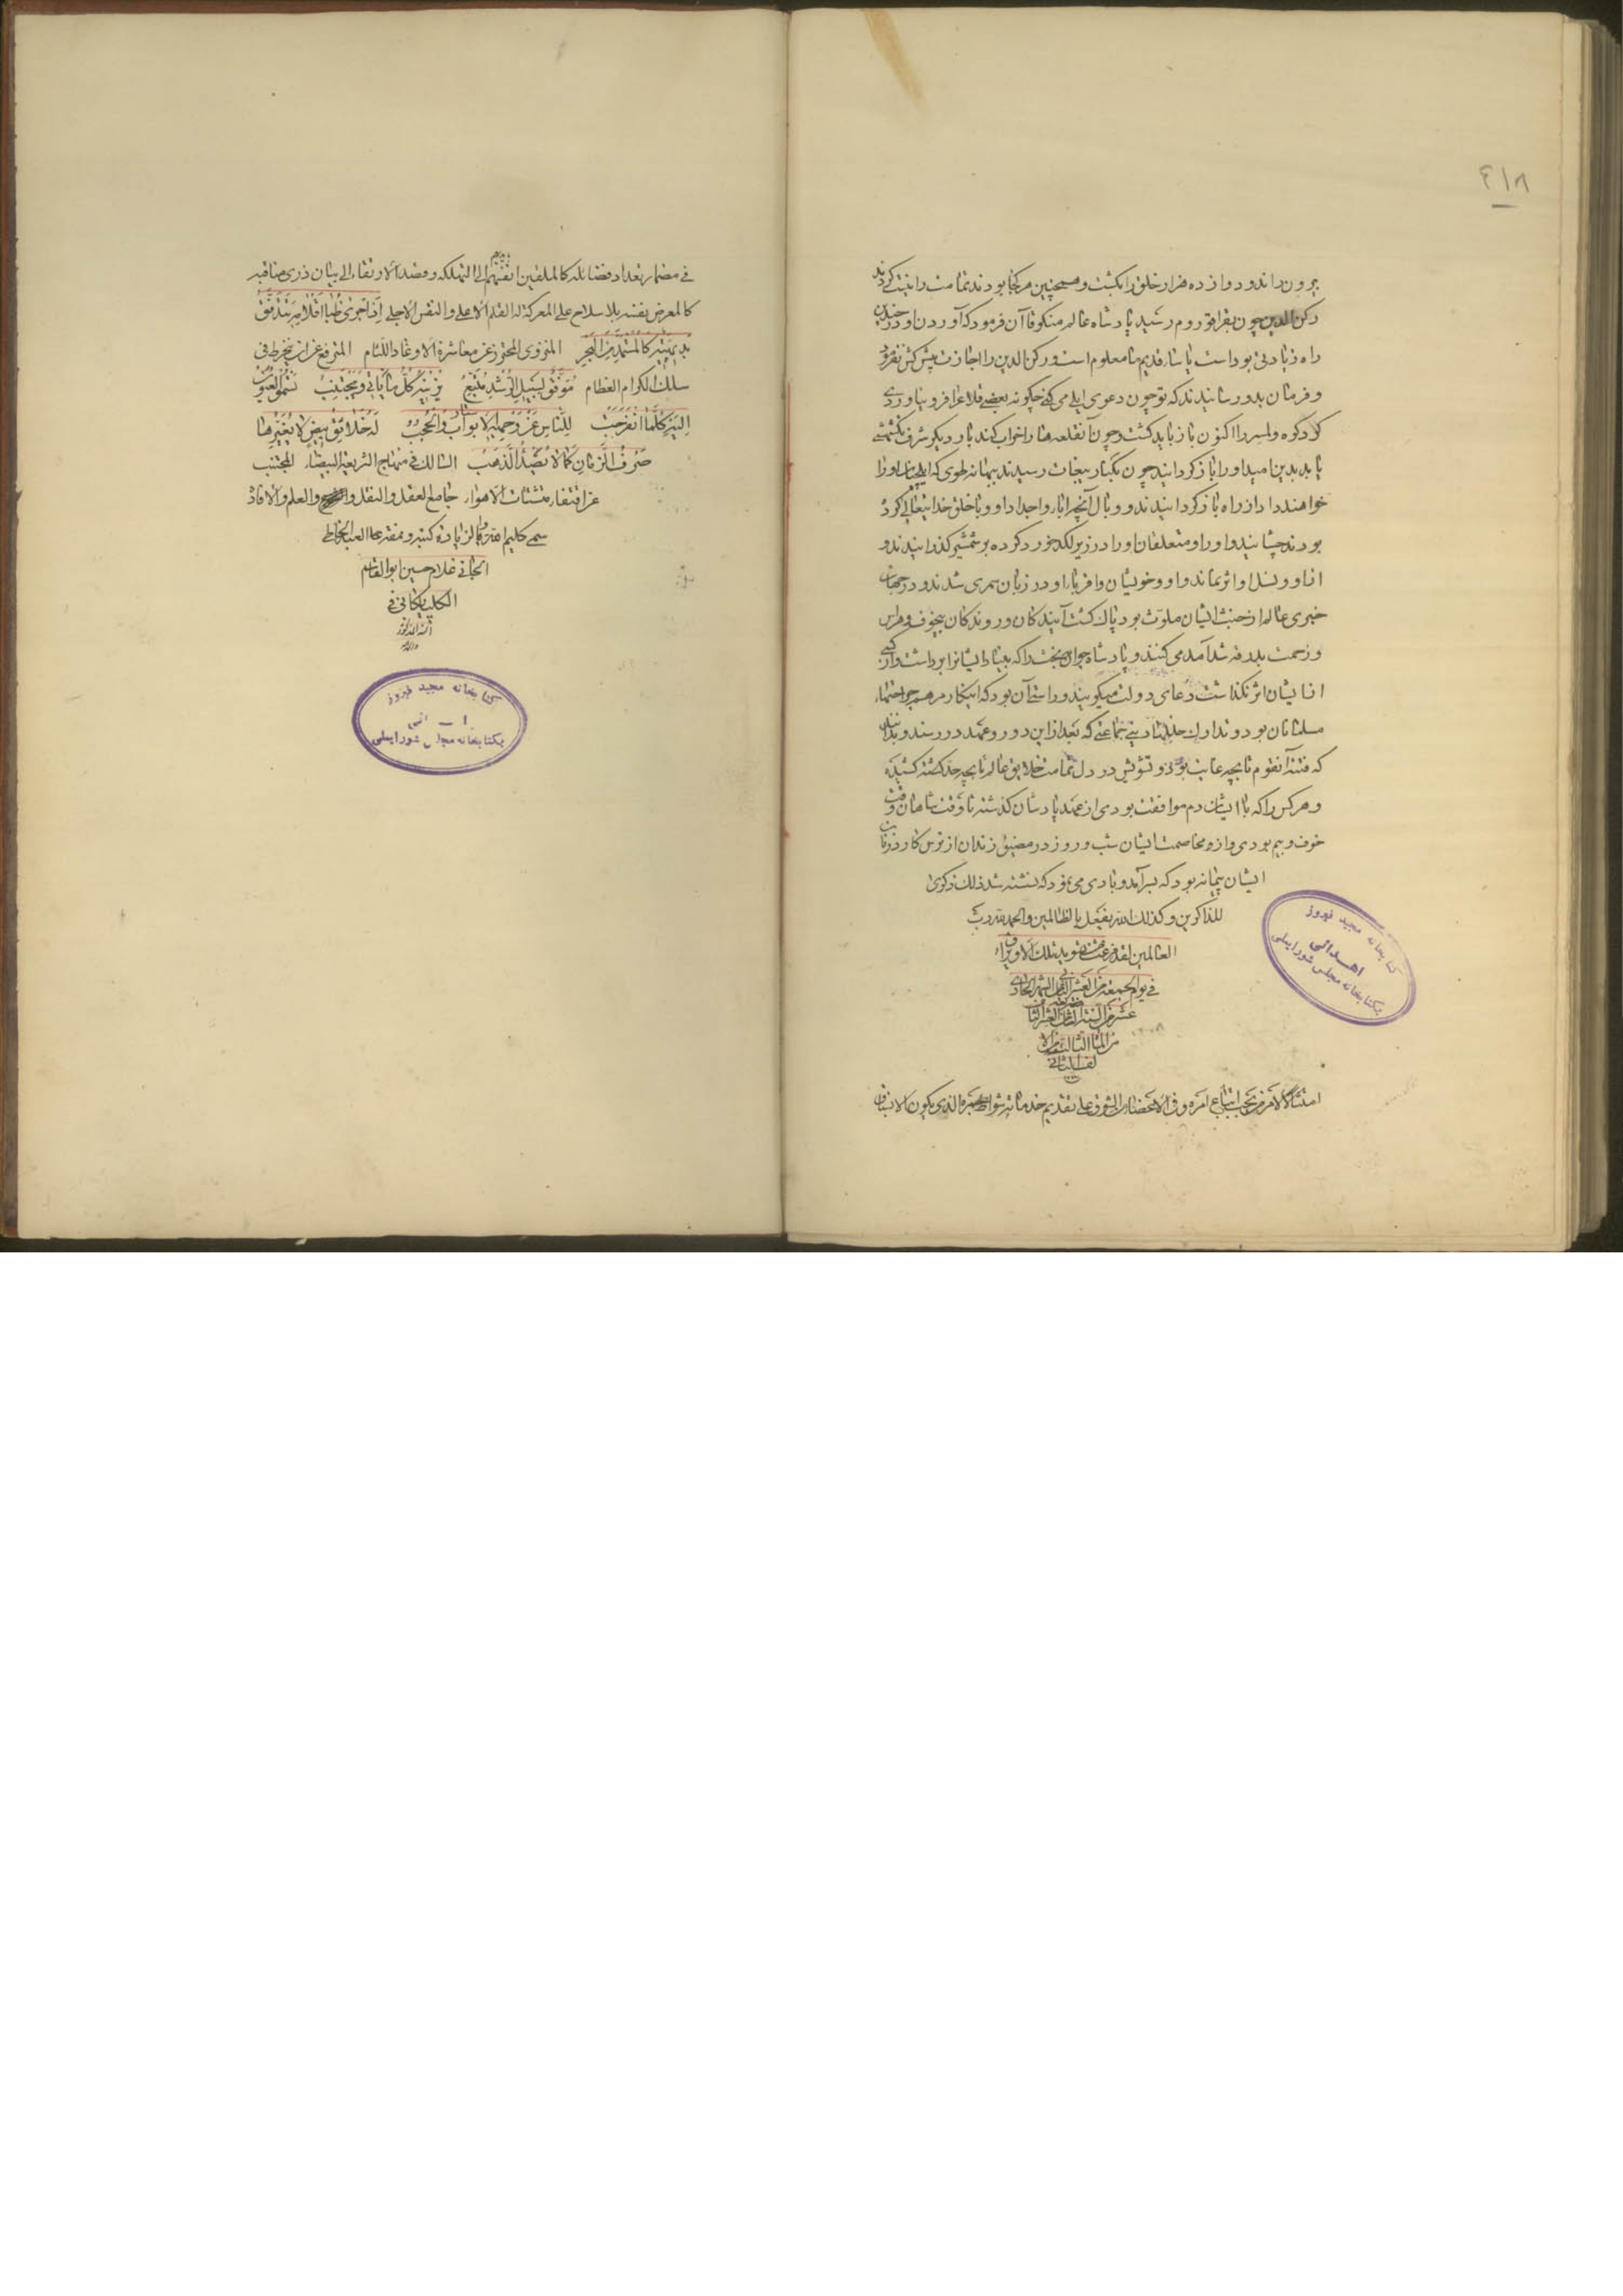 ۴۱۸
بیرون راند و دوازده هزار خلق را بکشت و همچنین هر کجا بودند تمامت را نیست کردند
رکن الدین چون بقراقوروم رسید پادشاه عالم منکوقاآن فرمود که آوردن او در چندین
راه زیادتی بوداست یاساء قدیم ما معلوم است و رکن الدین را اجازت پیش کش نفرمود
و فرمان بدو رسانیدند که تو چون دعوی ایلی می کنی چگونه بعضی قلاع را فرو نیاوردی
کردکوه و لمسر را اکنون باز باید کشت و چون آن قلعه ها را خراب کند بار دیگر شرف تکشمیشی
یابد بدین امید او را باز گردانیدند چون بکنار رسیدند ببهانه طوی که ایلچیان او را
خواهند داد از راه باز گردانیدند و وبال آنچه آباء و اجداد او با خلق خدایتعالی کرده
بودند چشانیدند و او را و متعلقان او را در زیر لگد خورد کرده بر شمشیر گذرانیدند و
از او و نسل او اثر نماند و او و خویشان و اقرباء او در زبان سمری شدند و در جهان
خبری عالم از خبث ایشان ملوث بود پاک گشت آیندگان و روندگان بیخوف و هراس
و زحمت بدرقه شد آمد می کنند و پادشاه جوان بخت را که بنیاد ایشانرا برداشت و از کسی
از ایشان اثر نگذاشت دعای دولت میگویند و راستی آن بود که این کار مرهم جراحتهاء
مسلمانان بود و تدارک خللهاء دینی جماعتی که بعد از این دور و عهد در رسند و بدانند
که فتنه آنقوم تا بچه غایت بود و تشویش در دل تمامت خلایق عالم تا بچه حد کشته کشیده
و هرکس را که با ایشان دم موافقت بودی از عهد پادشاهان گذشته تا وقت شاهان وقت
خوف و بیم بودی و از مخاصمت ایشان شب و روز در مضیق زندان از ترس کارد زنان
ایشان پیمانه بود که بسر آمد و بادی می نمود که نشسته شد ذلک ذکری
للذاکرین و کذلک الله یفعل بالظالمین والحمد لله رب
العالمین لقد فرغت من تسوید تلک الاوراق
فی یوم الجمعة من العشر الثانی من الشهر الحادی
عشر من السنة العشر الثانی
من المائة الثالثة من الا
لف الثانی
امتثالا لامر من یجب اتباع امره وفی الاعضاء الشوق علی تقدیم خدماته الذی یکون الانسان
فی مضمار تعداد فضائله کالملقین انفسهم بایدیهم الی التهلکة وقصد الارتقاء الی بیان ذری مناقبه
کالمعرض نفسه بلا سلاح علی المعرکة له القلم الاعلی والنفس الاجلی اذا اجری ظبا اقلامه بتدفق
بد یمینه کالمستمد من البحر المنزوی المحترز عن معاشرة الاوغاد اللئام المترفع عن ان ینخرط فی
سلک الکرام العظام موفق لسبیل الرشد متبع یزینه کل ما یأتی ویجتنب تسمو العیون
الیه کلما انفرجت للناس عن وجهه الابواب والحجب له خلائق بیض لا یغیرها
صرف الزمان کما لا یصدأ الذهب السالک فی منهاج الشریعة البیضاء المجتنب
عن اقتفاء متشتات الاهواء جامع العقل والنقل والعلم والافادة
سمی کلیم الله زیادة کتبه ونمقه عا العبد الخاطی
الجانی غلامحسین ابوالقاسم
الگلپایگانی فی
کتابخانه مجید فیروز
اهدائی
بکتابخانه مجلس شورایملی
کتابخانه مجید فیروز
بکتابخانه مجلس شورایملی